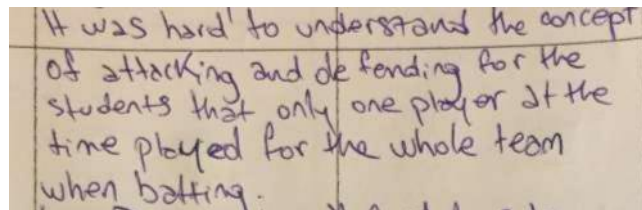 It was hard to understand the concept
of attacking and defending for the
students that only one player at the
time played for the whole team
when batting.